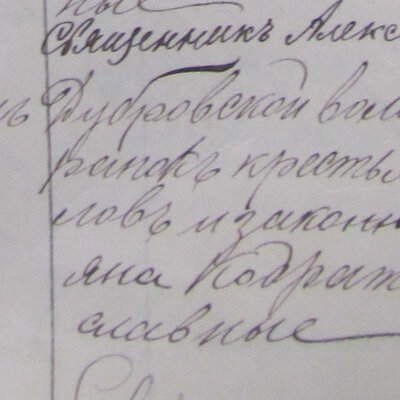 ные
Священникъ Алекс
Дубровской вол
кресть
ловъ и законн
яна Кодрат
славные